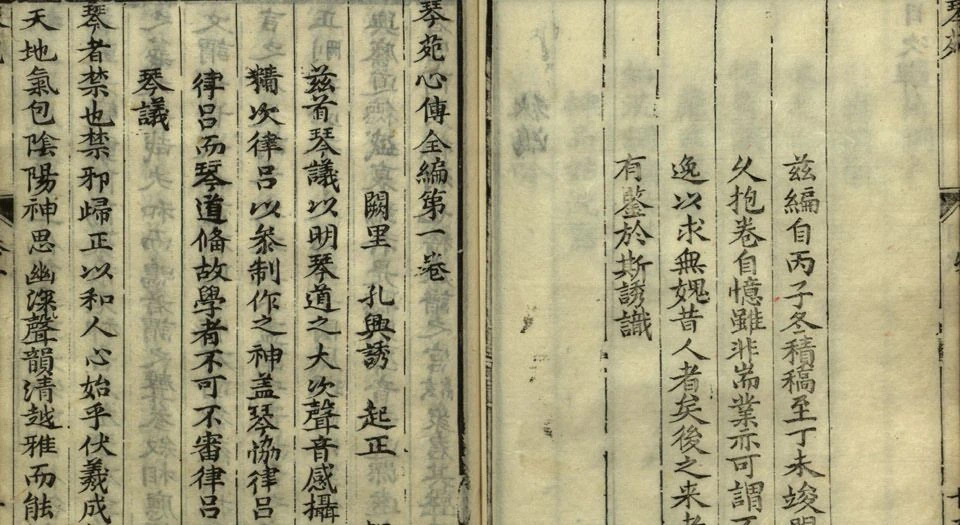 茲編自丙子冬積稿至丁未竣
久抱卷自憶雖非耑業亦可謂
逸以求無媿昔人者矣後之來者
有鑒於斯誘識
琴苑心傳全編第一卷
闕里 孔興誘 起正
茲首琴議以明琴道之大次聲音感攝
精次律呂以叅制作之神盖琴協律呂
律呂而琴道俻故學者不可不審律呂
琴議
琴者禁也禁邪歸正以和人心始乎伏羲成
天地氣包陰陽神思幽深聲韻清越雅而能